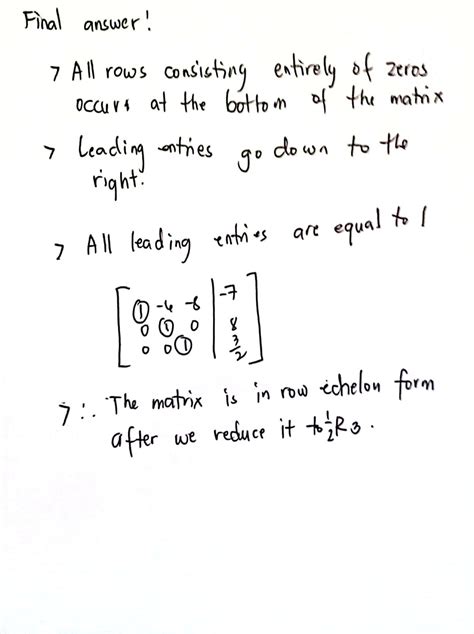 Final answer!
> All rows consisting entirely of zeros
occurs at the bottom of the matrix
> Leading entries go down to the
right.
> All leading entries are equal to 1
1 -6 -8 | -7
0 1 0 | 8
0 0 1 | 3/2
> ∴ The matrix is in row echelon form
after we reduce it to 1/2 R3.